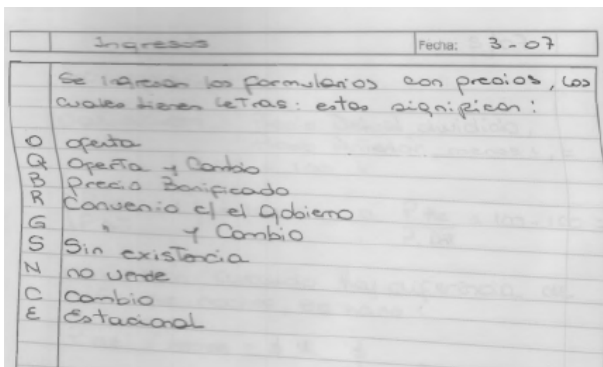 Ingresos Fecha: 3-07
Se ingresan los formularios con precios, los
cuales tienen letras: estas significan:
O oferta
Q Oferta y Cambio
B Precio Bonificado
R Convenio c/ el Gobierno
G " y Cambio
S Sin existencia
N no vende
C Cambio
E Estacional